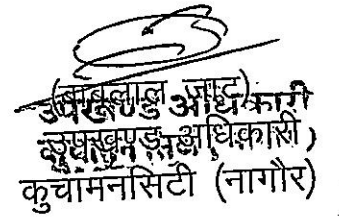 (बाबूलाल जाट)
उपखण्ड अधिकारी
उपखण्ड अधिकारी,
कुचामनसिटी (नागौर)